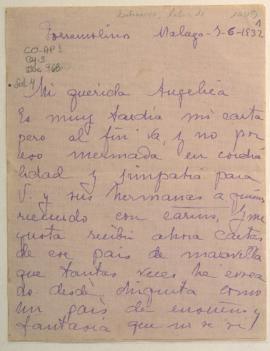 1
Torremolinos Malaga-3-6-1932
Mi querida Angelica
Es muy tardia mi carta
pero al fin va, y no por
eso mermada, en cordia
lidad y simpatia para
V. y sus hermanas a quienes
recuerdo con cariño, ¡me
gusta recibir ahora cartas
de ese pais de maravilla
que tantas veces he evoca
do desde chiquita como
un pais de ensueño y
fantasia que no se vé!